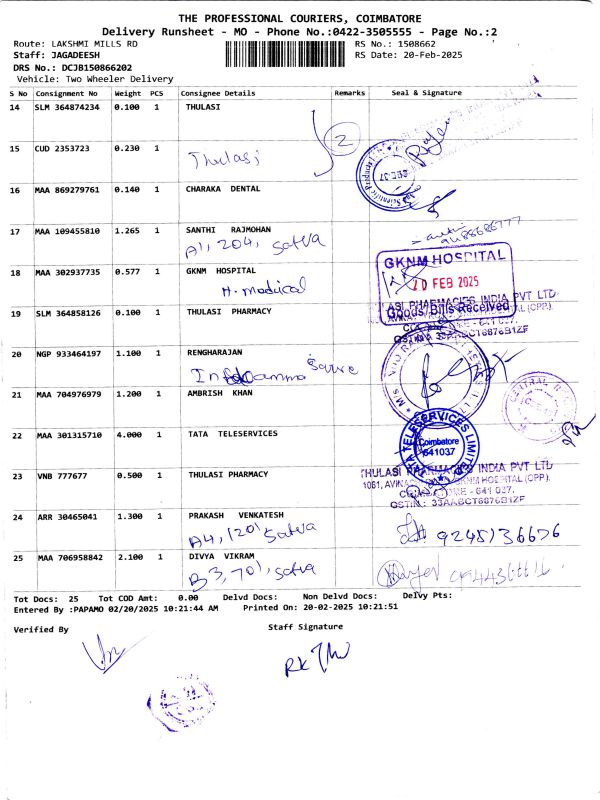 THE PROFESSIONAL COURIERS, COIMBATORE
Delivery Runsheet - MO - Phone No.:0422-3505555 - Page No.:2
Route: LAKSHMI MILLS RD RS No.: 1508662
Staff: JAGADEESH RS Date: 20-Feb-2025
DRS No.: DCJB150866202
Vehicle: Two Wheeler Delivery
S No Consignment No Weight PCS Consignee Details Remarks Seal & Signature
14 SLM 364874234 0.100 1 THULASI
2
15 CUD 2353723 0.230 1
Thulasi
16 MAA 869279761 0.140 1 CHARAKA DENTAL
17 MAA 109455810 1.265 1 SANTHI RAJMOHAN
A1, 204, Satva
18 MAA 302937735 0.577 1 GKNM HOSPITAL
H. Medical
GKNM HOSPITAL
20 FEB 2025
Goods/Bills Received
19 SLM 364858126 0.100 1 THULASI PHARMACY
THULASI PHARMACIES INDIA PVT LTD
20 NGP 933464197 1.100 1 RENGHARAJAN
21 MAA 704976979 1.200 1 AMBRISH KHAN
22 MAA 301315710 4.000 1 TATA TELESERVICES
TATA TELESERVICES LIMITED
Coimbatore
641037
23 VNB 777677 0.500 1 THULASI PHARMACY
THULASI PHARMACIES INDIA PVT LTD
1081, AVINASHI ROAD, GKNM HOSPITAL (CPP).
COIMBATORE - 641 037.
GSTIN : 33AABCT6876B1ZF
24 ARR 30465041 1.300 1 PRAKASH VENKATESH
A4, 120, Satva
9245136676
25 MAA 706958842 2.100 1 DIVYA VIKRAM
B3, 701, Satva
Tot Docs: 25 Tot COD Amt: 0.00 Delvd Docs: Non Delvd Docs: Delvy Pts:
Entered By :PAPAMO 02/20/2025 10:21:44 AM Printed On: 20-02-2025 10:21:51
Verified By Staff Signature